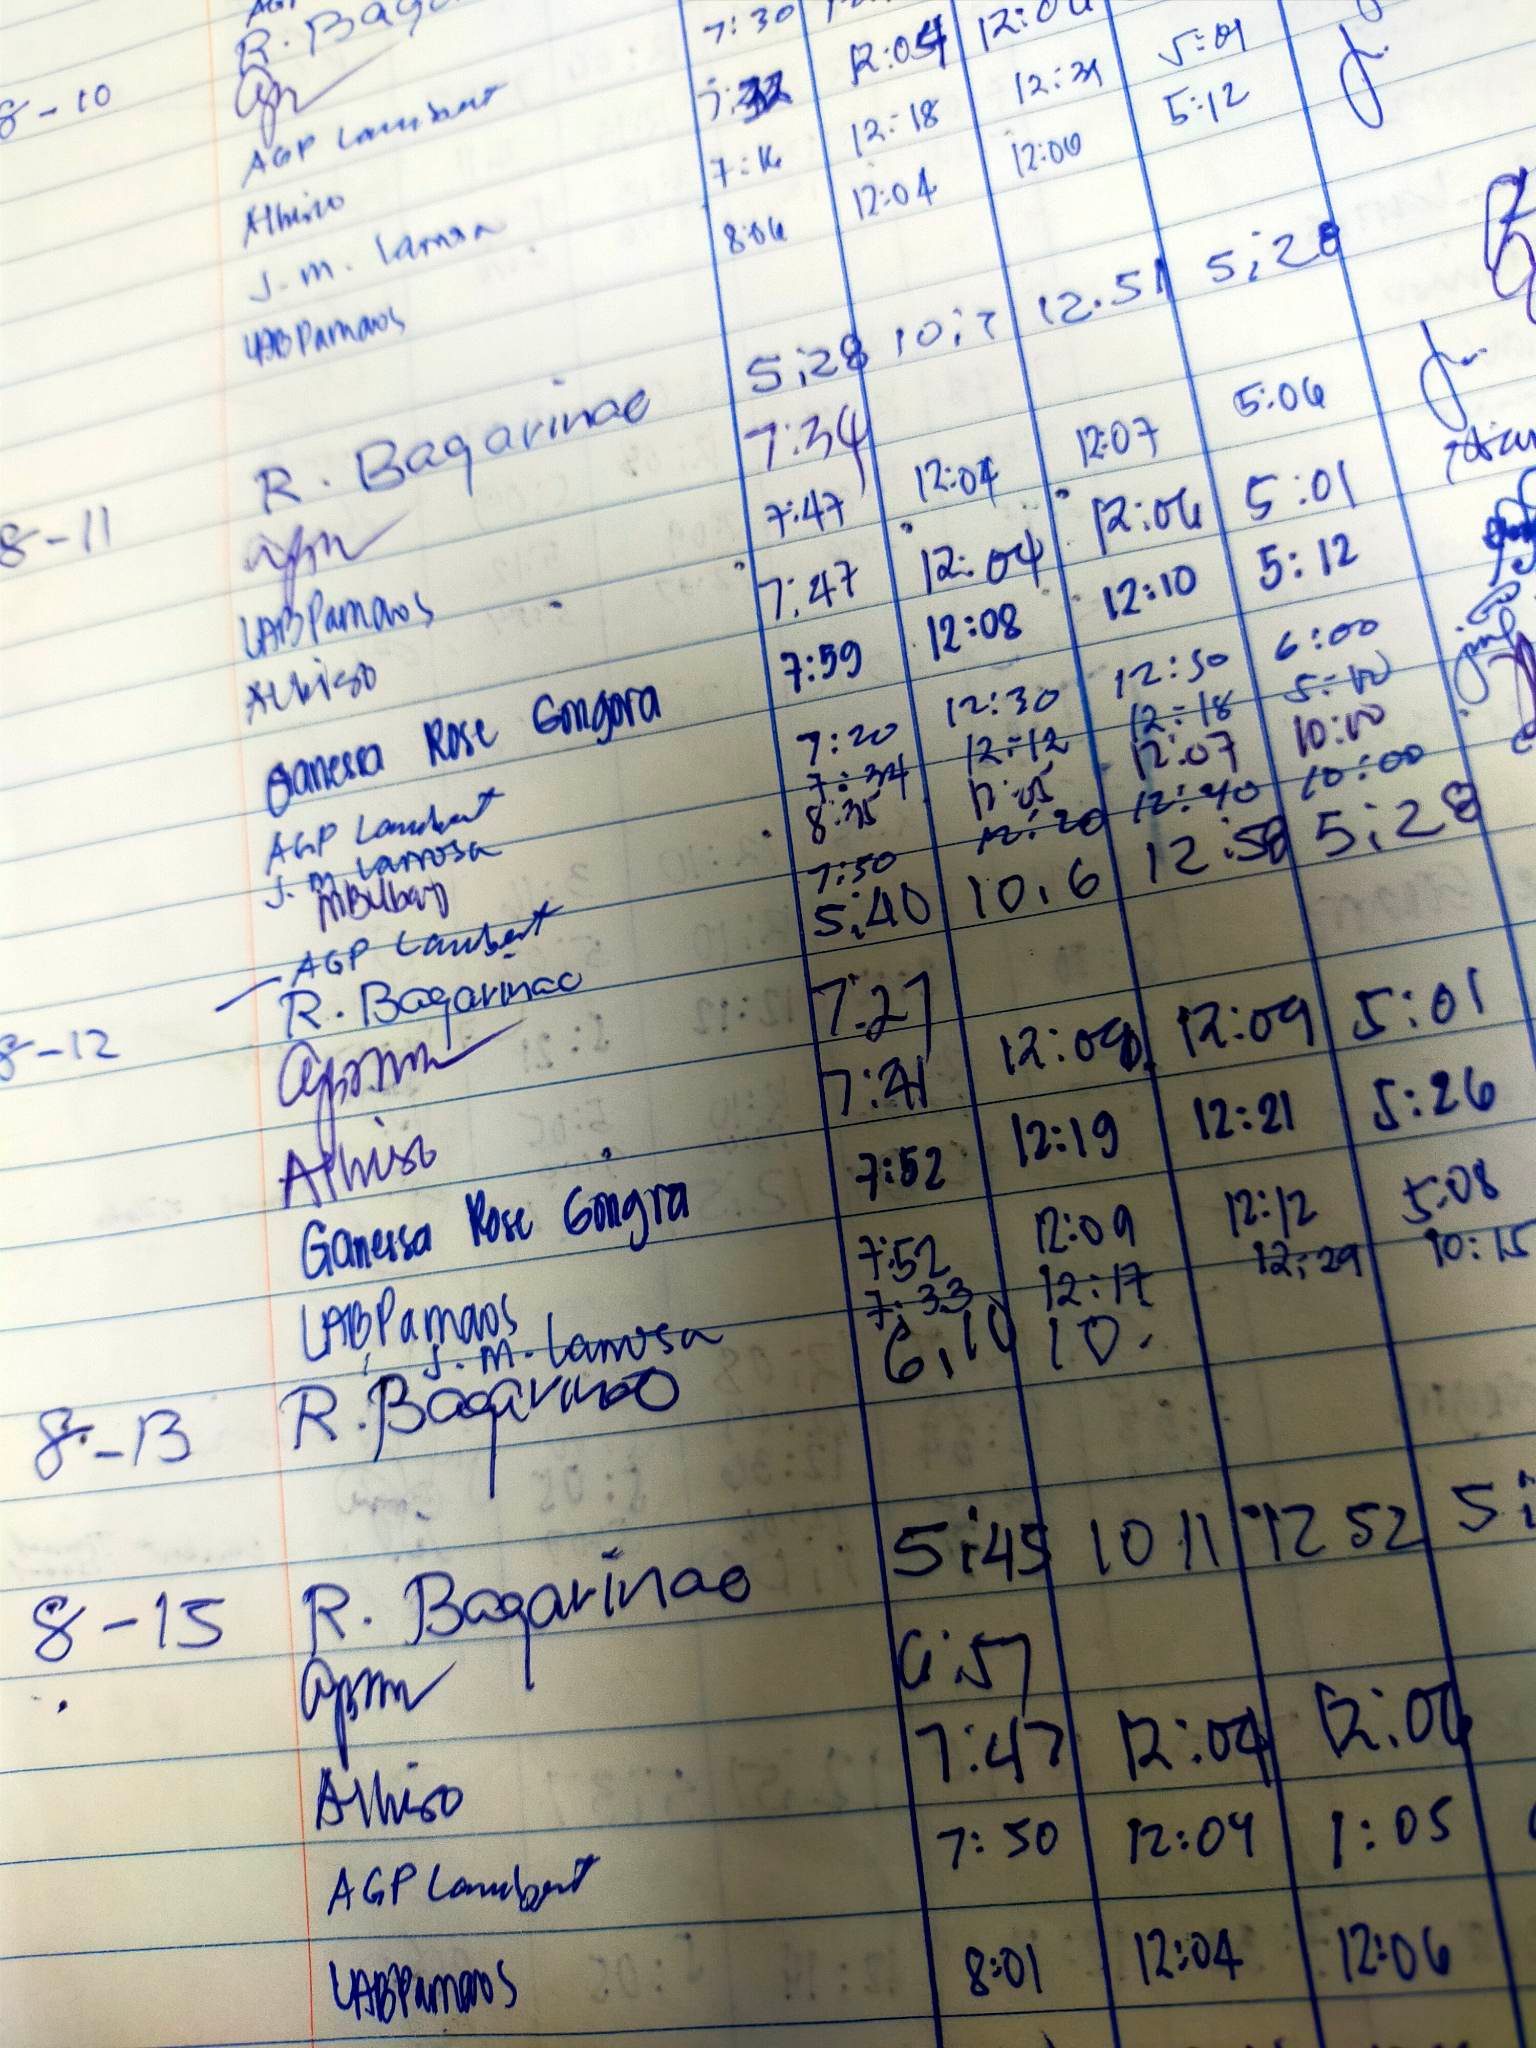 R. Bag 7:30
8-10 12:04
AGP Lambert 7:16 12:18 12:21 5:01
Alhiso 8:06 12:04 12:06 5:12
J. M. Lamosa
LABPamaos
8-11 R. Bagarinao 5;28 10;7 12.51 5;28
7:34
LABPamaos 7:47 12:04 12:07 5:06
Alhiso 7:47 12:04 12:06 5:01
Ganessa Rose Gongora 7:59 12:08 12:10 5:12
AGP Lambert 7:20 12:30 12:50 6:00
J. M. Lamosa 7:34 12:12 12:18 5:10
8:35 12:05 12:07 10:10
AGP Lambert 7:50 12:20 12:40 10:00
8-12 R. Bagarinao 5;40 10.6 12:58 5;28
7:27
Alhiso 7:41 12:09 12:09 5:01
Ganessa Rose Gongra 7:52 12:19 12:21 5:26
LABPamaos 7:52 12:09 12:12 5:08
J. M. Lamosa 7:33 12:17 12:29 10:15
8-13 R. Bagarinao 6,10 10.
8-15 R. Bagarinao 5;45 10 11 12 52 5;
6:57
Alhiso 7:47 12:04 12:06
AGP Lambert 7:50 12:04 1:05
LABPamaos 8:01 12:04 12:06